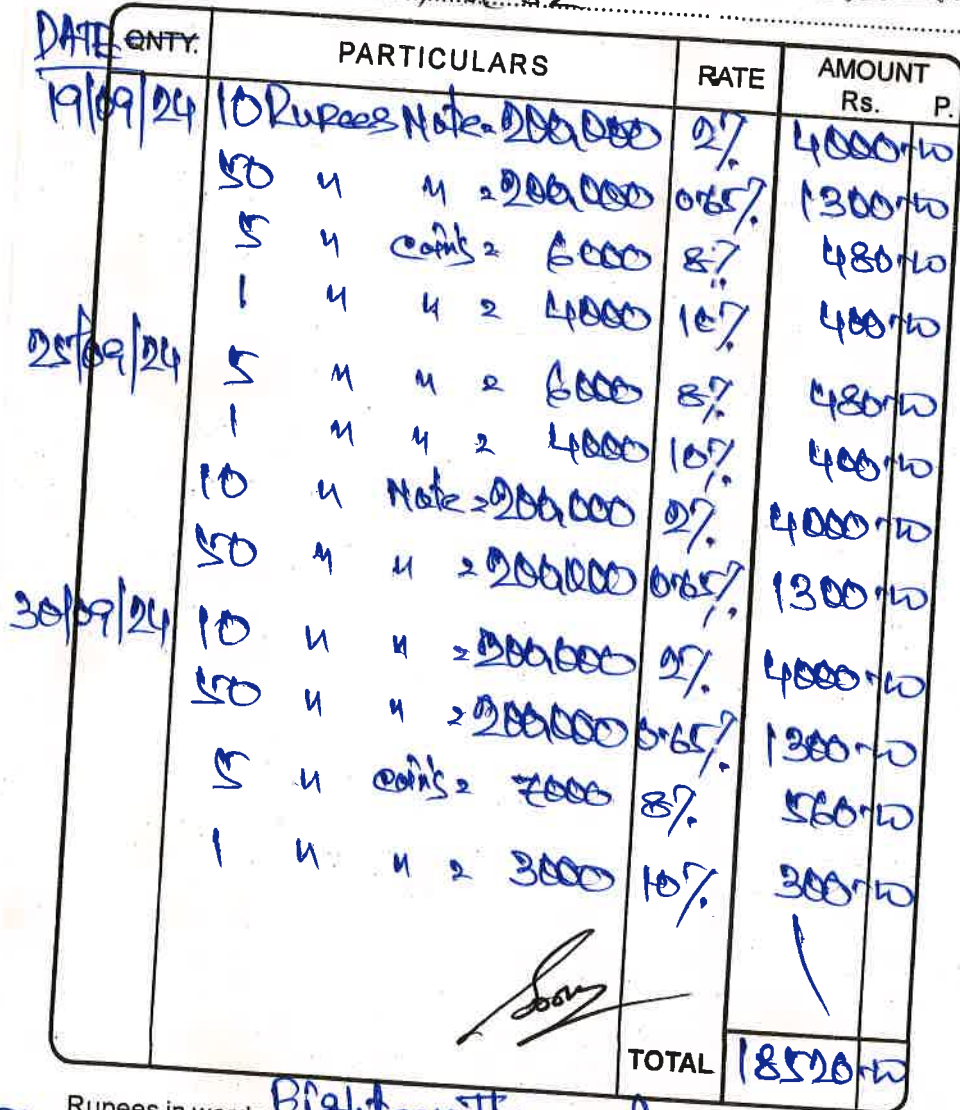 DATE QNTY. PARTICULARS RATE AMOUNT Rs. P.
19/09/24 10 Rupees Note = 200,000 2% 4000=00
50 〃 〃 = 200,000 0.65% 1300=00
5 〃 coins = 6000 8% 480=00
1 〃 〃 = 4000 10% 400=00
25/09/24 5 〃 〃 = 6000 8% 480=00
1 〃 〃 = 4000 10% 400=00
10 〃 Note = 200,000 2% 4000=00
50 〃 〃 = 200,000 0.65% 1300=00
30/09/24 10 〃 〃 = 200,000 2% 4000=00
50 〃 〃 = 200,000 0.65% 1300=00
5 〃 coins = 7000 8% 560=00
1 〃 〃 = 3000 10% 300=00
TOTAL 18520=00
Rupees in word